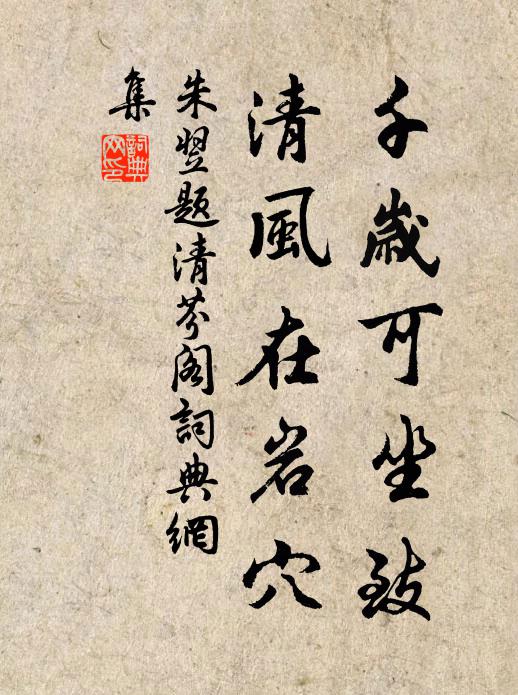 千歲可坐致
清風在岩穴
朱翌題清芬閣詞典網
集
詞典
网印